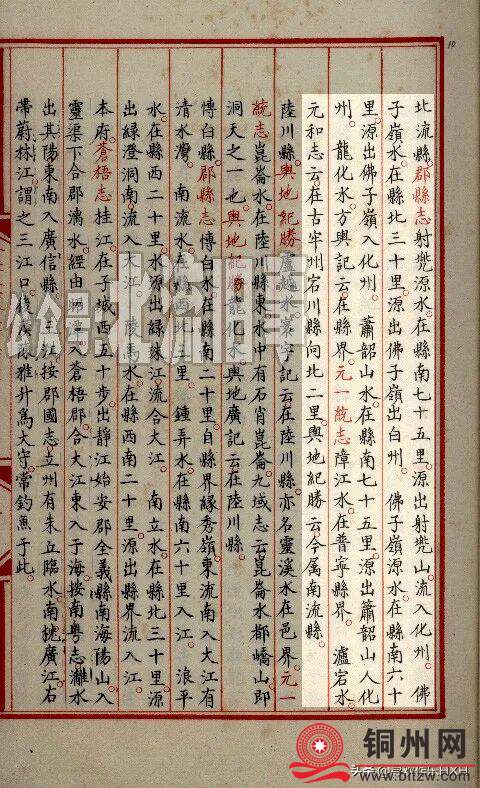 10
北流縣郡縣志射堯源水在縣南七十五里源出射堯山流入化州。佛
子嶺水在縣北三十里源出佛子嶺出白州。佛子嶺源水在縣南六十
里源出佛子嶺入化州。蕭韶山水在縣南七十五里源出蕭韶山入化
州。龍化水方輿記云在縣界元一統志障江水在普寧縣界。瀘宕水
元和志云在古牢州宕川縣向北二里輿地紀勝云今屬南流縣。
陸川縣輿地紀勝盧越水寰宇記云在陸川縣亦名靈溪水在邑界元一
統志崑崙水在陸川縣東水中有石肖崑崙九域志云崑崙水都嶠山即
洞天之一也輿地紀勝龍化水輿地廣記云在陸川縣。
博白縣郡縣志博白水在縣南二十里自縣界緣秀嶺東流南入大江有
清水灣。南流水在縣西北三里。鍾弄水在縣南六十里入江。浪平
水在縣西二十里水源出綠珠江流合大江。南立水在縣北三十里源
出綠澄洞南流入大江。陵馬水在縣西南二十里源出縣界流入江。
本府蒼梧志桂江在子城西五十步出靜江始安郡全義縣南海陽山入
靈渠下合郡漓水經由 入蒼梧郡合大江東入于海按南粤志灕水
出其陽東南入廣信縣 江按郡國志立州有朱丘臨水南 廣江右
帶蔚林江謂之三江口後漢陳雅升為大守常釣魚于此。
公众号
北流旧事
铜州网
www.bltzw.com
头条